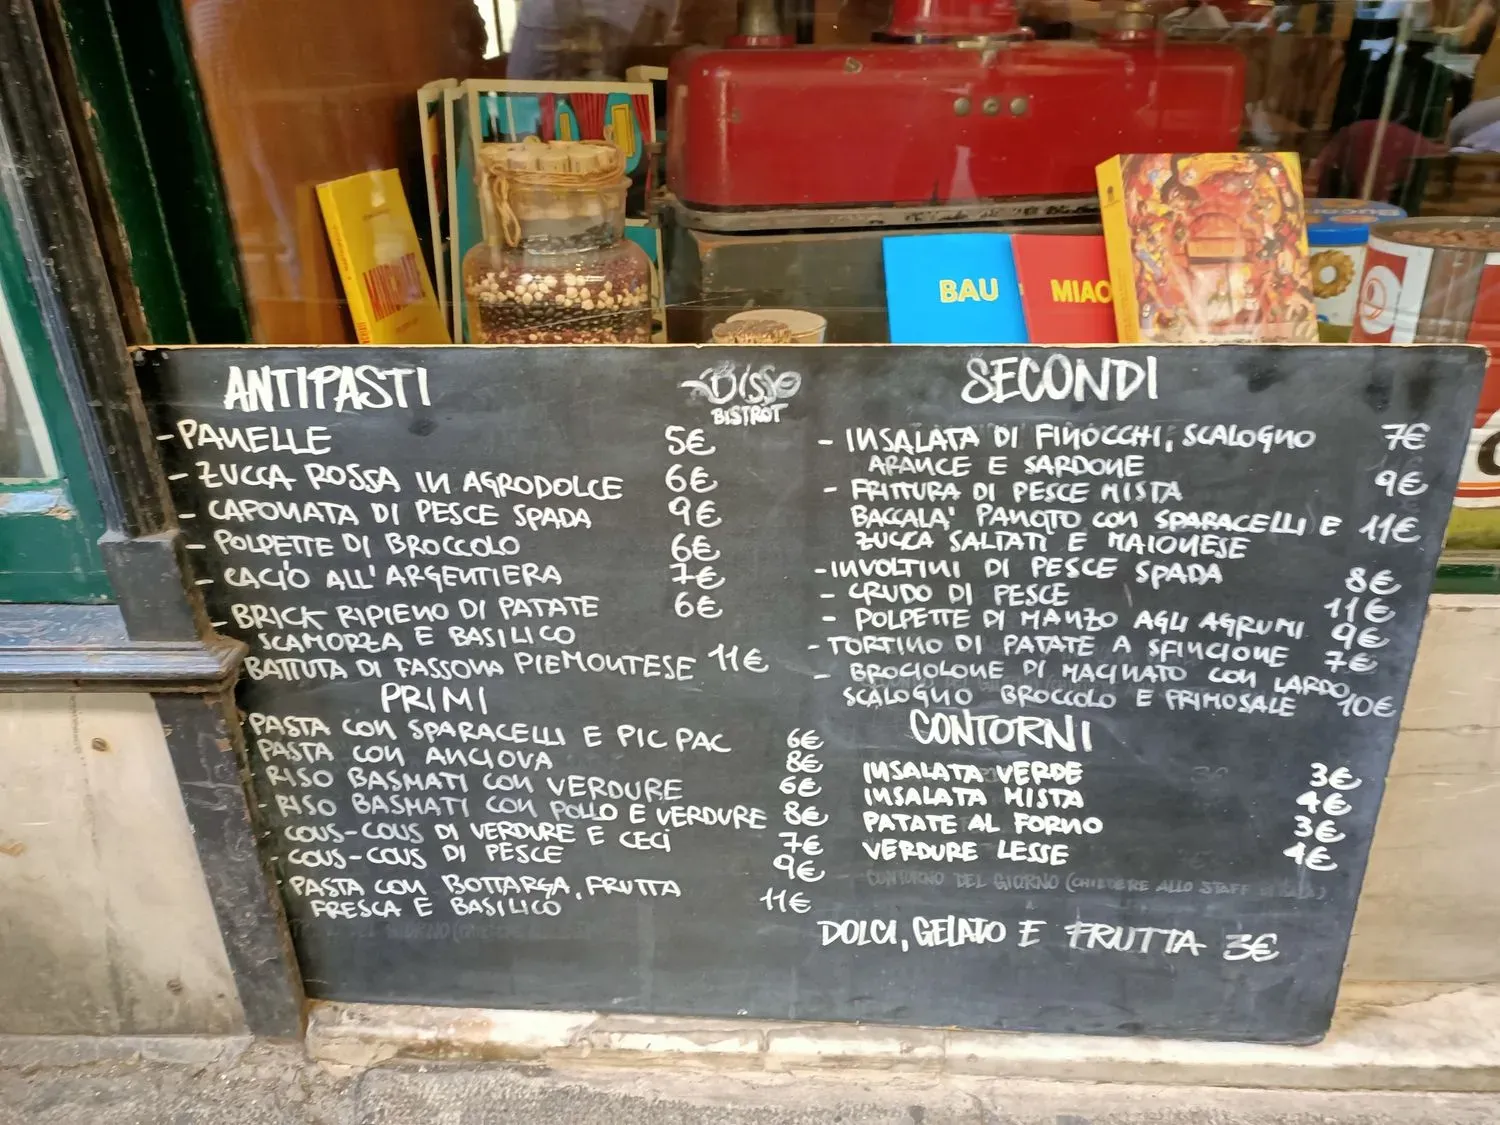 BAU
MIAO
BISSO
BISTROT
ANTIPASTI
- PANELLE 5€
- ZUCCA ROSSA IN AGRODOLCE 6€
- CAPONATA DI PESCE SPADA 9€
- POLPETTE DI BROCCOLO 6€
- CACIO ALL'ARGENTIERA 7€
- BRICK RIPIENO DI PATATE 6€
SCAMORZA E BASILICO
BATTUTA DI FASSONA PIEMONTESE 11€
PRIMI
PASTA CON SPARACELLI E PIC PAC 6€
PASTA CON ANCIOVA 8€
- RISO BASMATI CON VERDURE 6€
- RISO BASMATI CON POLLO E VERDURE 8€
- COUS-COUS DI VERDURE E CECI 7€
- COUS-COUS DI PESCE 9€
- PASTA CON BOTTARGA, FRUTTA 11€
FRESCA E BASILICO
SECONDI
- INSALATA DI FINOCCHI, SCALOGNO 7€
ARANCE E SARDONE
- FRITTURA DI PESCE MISTA 9€
BACCALA' PANATO CON SPARACELLI E 11€
ZUCCA SALTATI E MAIONESE
- INVOLTINI DI PESCE SPADA 8€
- CRUDO DI PESCE 11€
- POLPETTE DI MANZO AGLI AGRUMI 9€
- TORTINO DI PATATE A SFINCIONE 7€
- BROCIOLONE DI MACINATO CON LARDO,
SCALOGNO BROCCOLO E PRIMOSALE 10€
CONTORNI
INSALATA VERDE 3€
INSALATA MISTA 4€
PATATE AL FORNO 3€
VERDURE LESSE 4€
CONTORNO DEL GIORNO (CHIEDERE ALLO STAFF
DOLCI, GELATO E FRUTTA 3€